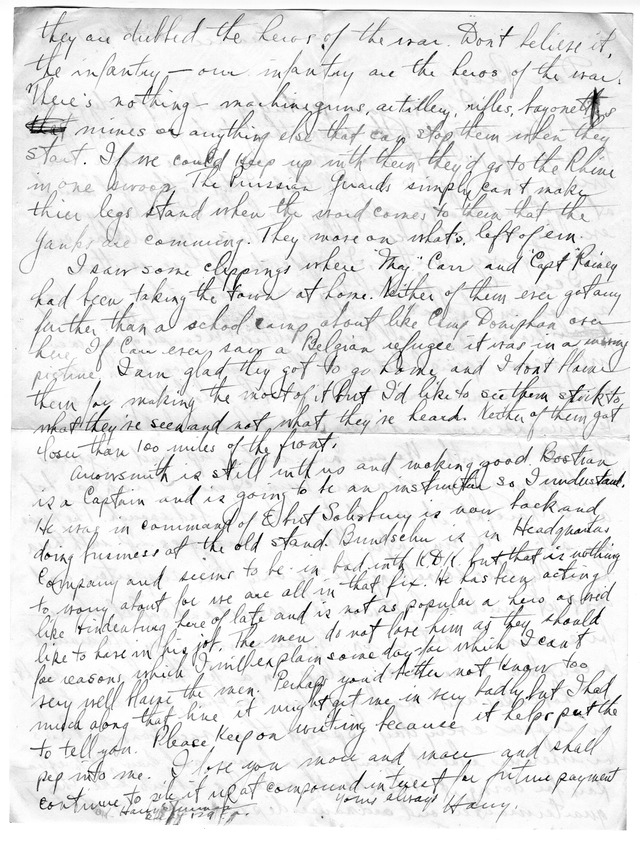 they are dubbed the heros of the war. Don't believe it,
the infantry – our infantry are the heros of the war.
There's nothing – machine guns, artillery, rifles, bayonets
mines or anything else that can stop them when they
start. If we could keep up with them they'd go to the Rhine
in one swoop. The Prussian Guards simply can't make
thier legs stand when the word comes to them that the
Yanks are comming. They move on what's left of em.
I saw some clippings where "Maj." Carr and "Capt" Roney
had been taking the town at home. Neither of them ever got any
further than a school camp about like Camp Doniphan over
here. If Carr every saw a Belgian refugee it was in a moving
picture. I am glad they got to go home and I dont blame
them for making the most of it But I'd like to see them stick to
what they've seen and not what they've heard. Neither of them got
closer than 100 miles of the front.
Arrowsmith is still with us and making good. Bostian
is a Captain and is going to be an instructor so I understand.
He was in command of E but Salisbury is now back and
doing business at the old stand. Bundschu is in Headquarters
Company and seems to be in bad with K.D.K. but that is nothing
to worry about for we are all in that fix. He has been acting
like Hindenburg here of late and is not as popular a hero as he'd
like to have in his job. The men do not love him as they should
for reasons which I will explain some day for which I can't
very well blame the men. Perhaps you'd better not know too
much along that line it might get me in very badly but I had
to tell you. Please keep on writing because it helps put the
pep into me. I love you more and more and shall
continue to pile it up at compound interest for future payment
Yours always
Harry.
Harry S Truman
Capt 129 F.A.